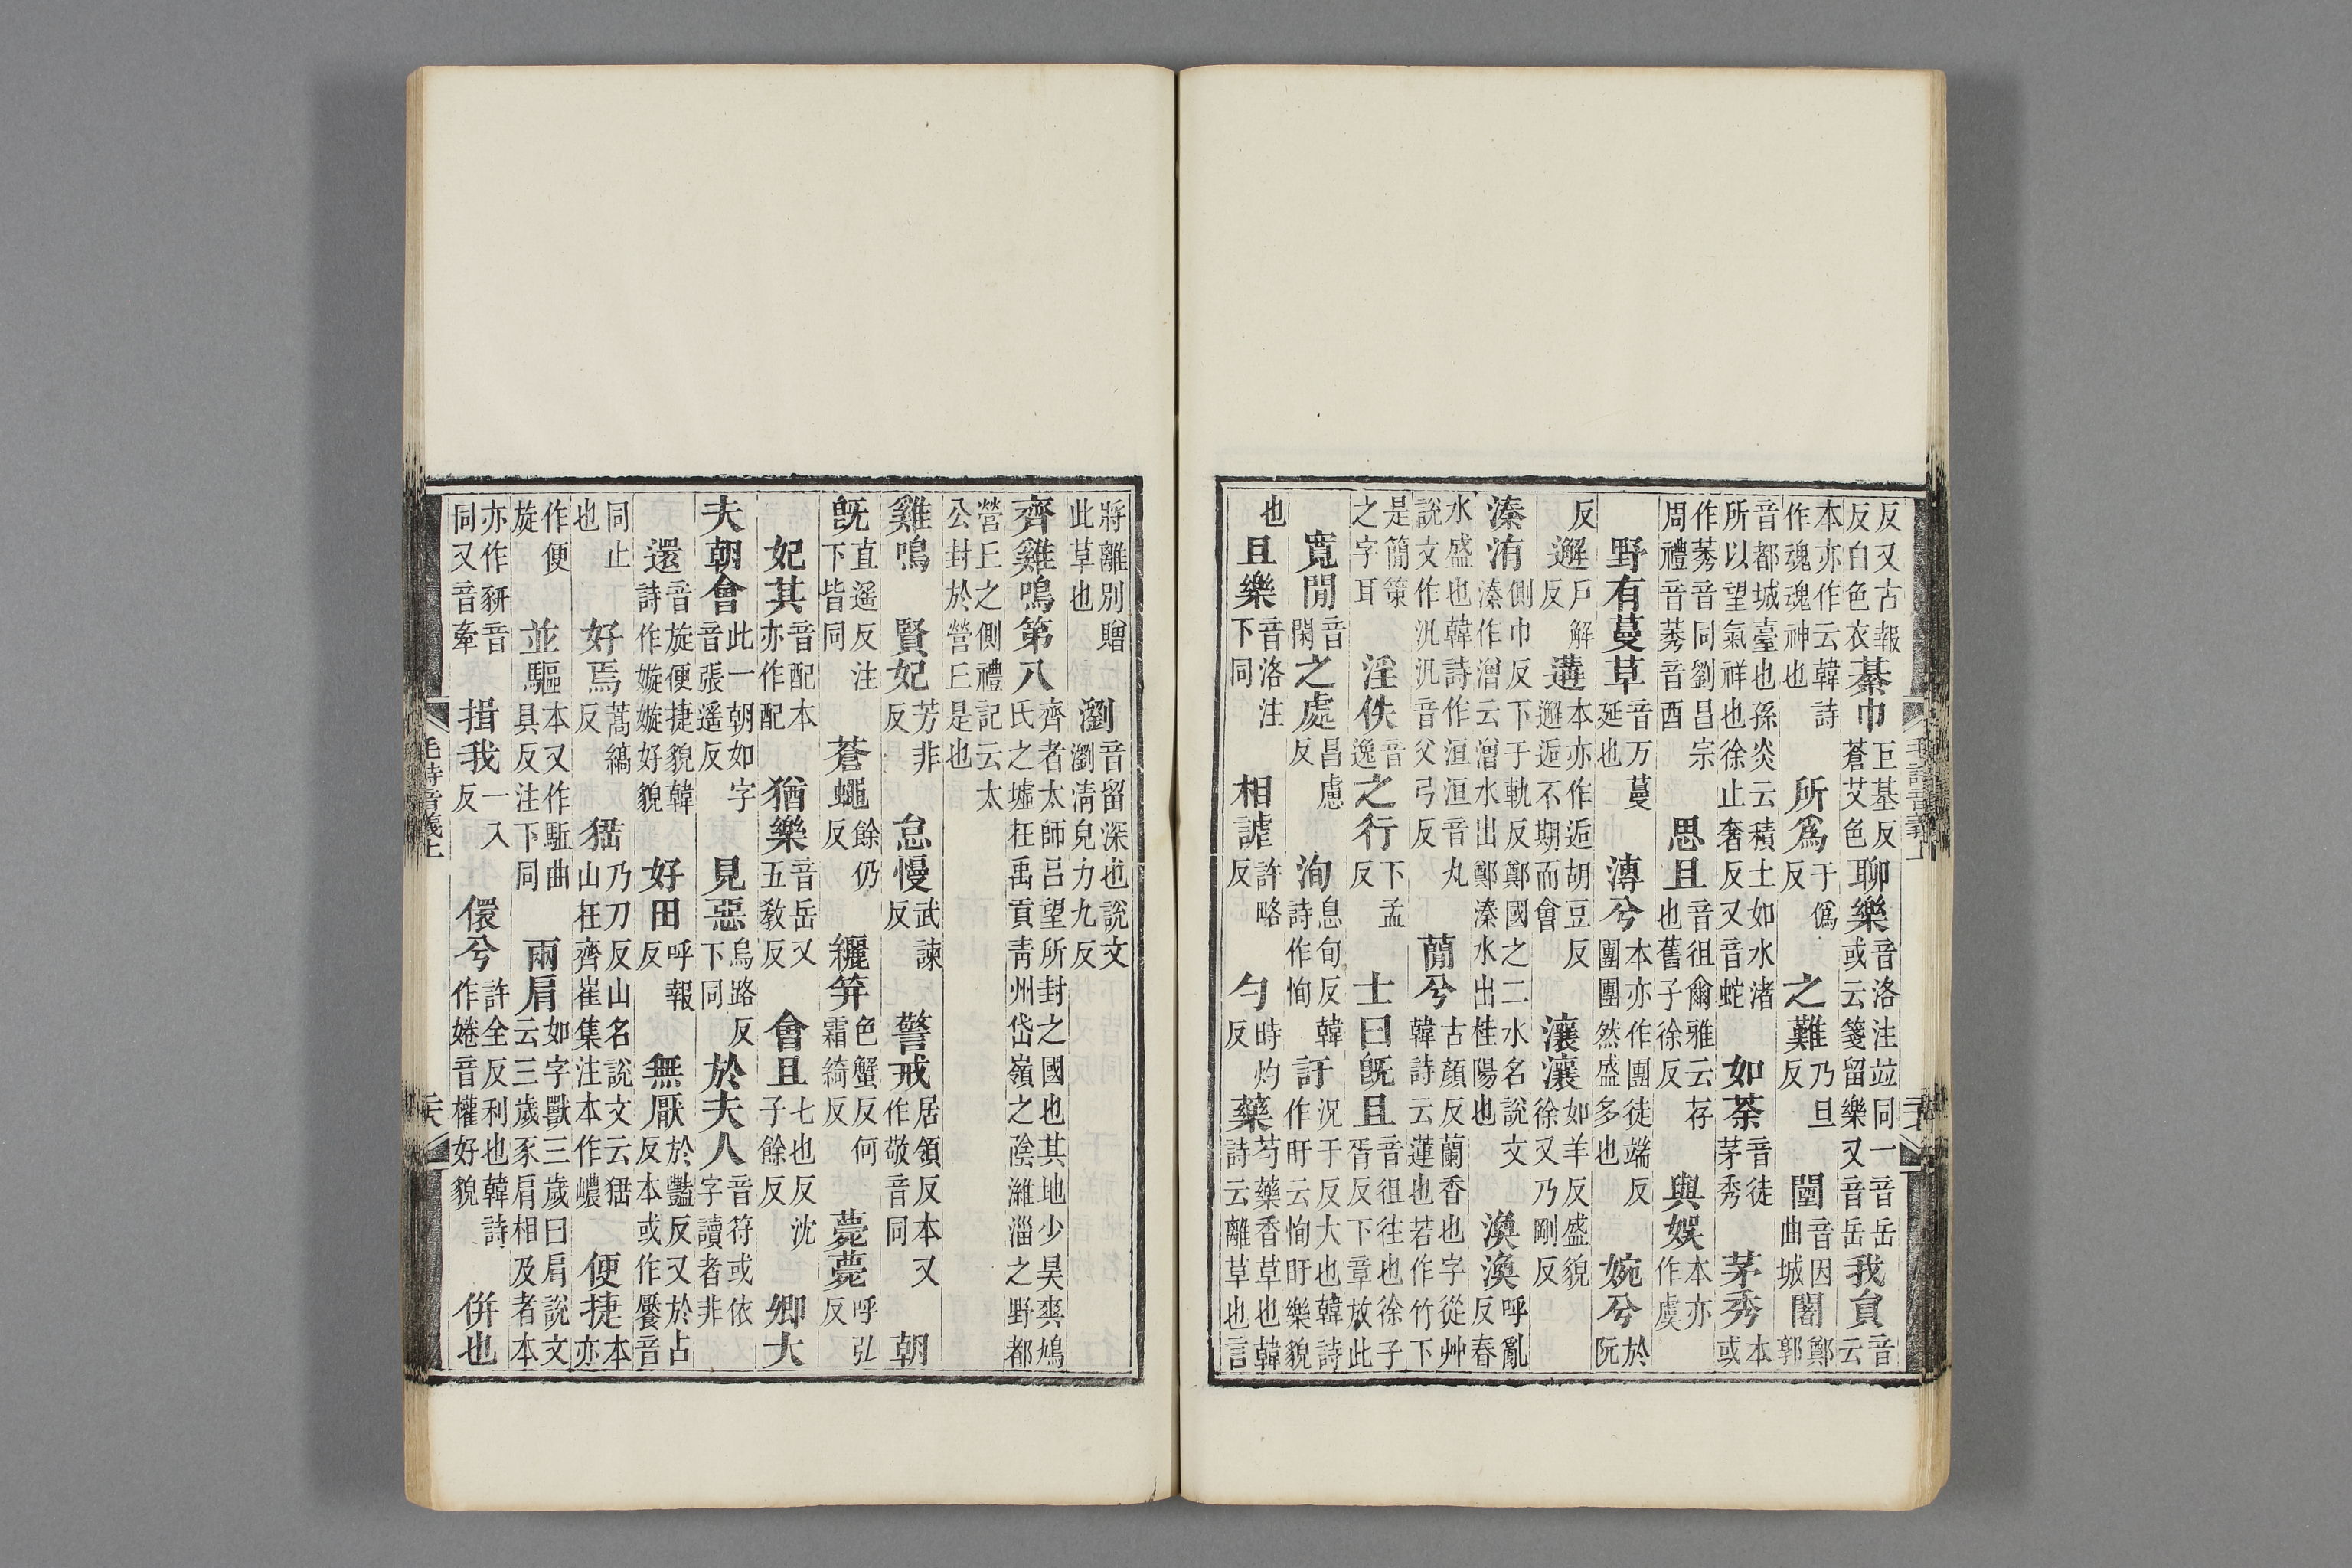 反又古報反白色衣綦巾巨基反蒼艾色聊樂音洛注竝同一音岳或云箋留樂又音岳我員音云
本亦作云韓詩作魂魂神也所爲于僞反之難乃旦反闉音因曲城闍鄭郭
音都城臺也孫炎云積土如水渚所以望氣祥也徐止奢反又音蛇如荼音徒茅秀茅秀本或
作莠音同劉昌宗周禮音莠音酉思且音徂爾雅云存也舊子徐反與娛本亦作虞
野有蔓草音万蔓延也漙兮本亦作團徒端反團團然盛多也婉兮於阮
反邂戶解反遘本亦作逅胡豆反邂逅不期而會瀼瀼如羊反盛貌徐又乃剛反
溱洧側巾反下于軌反鄭國之二水名說文溱作潧云潧水出鄭溱水出桂陽也渙渙呼亂反春
水盛也韓詩作洹洹音丸說文作汎汎音父弓反蕑兮古顏反蘭香也字從艸韓詩云蓮也若作竹下
是簡策之字耳淫佚音逸之行下孟反士曰旣且音徂往也徐子胥反下章放此
寬閒音閑之處昌慮反洵息旬反韓詩作恂訏況于反大也韓詩作盱云恂盱樂貌
也且樂音洛注下同相謔許略反勺時灼反藥芍藥香草也韓詩云離草也言
將離別贈此草也瀏音留深也說文瀏清皃力九反
齊雞鳴第八齊者太師呂望所封之國也其地少昊爽鳩氏之墟在禹貢靑州岱嶺之陰濰淄之野都
營丘之側禮記云太公封於營丘是也
雞鳴賢妃芳非反怠慢武諫反警戒居領反本又作敬音同朝
旣直遥反注下皆同蒼蠅餘仍反纚笄色蟹反何霜綺反薨薨呼弘反
妃其音配本亦作配猶樂音岳又五敎反會且七也反沈子餘反卿大
夫朝會此一朝如字音張遥反見惡烏路反下同於夫人音符或依字讀者非
還音旋便捷貌韓詩作嫙嫙好貌好田呼報反無厭於豔反又於占反本或作饜音
同止也好焉蒿縞反猺乃刀反山名說文云猺山在齊崔集注本作巎便捷本亦
作便旋並驅本又作駈曲具反注下同兩肩如字獸三歲曰肩說文云三歲豕肩相及者本
亦作豜音同又音牽揖我一入反儇兮許全反利也韓詩作婘音權好貌併也
毛詩音義上